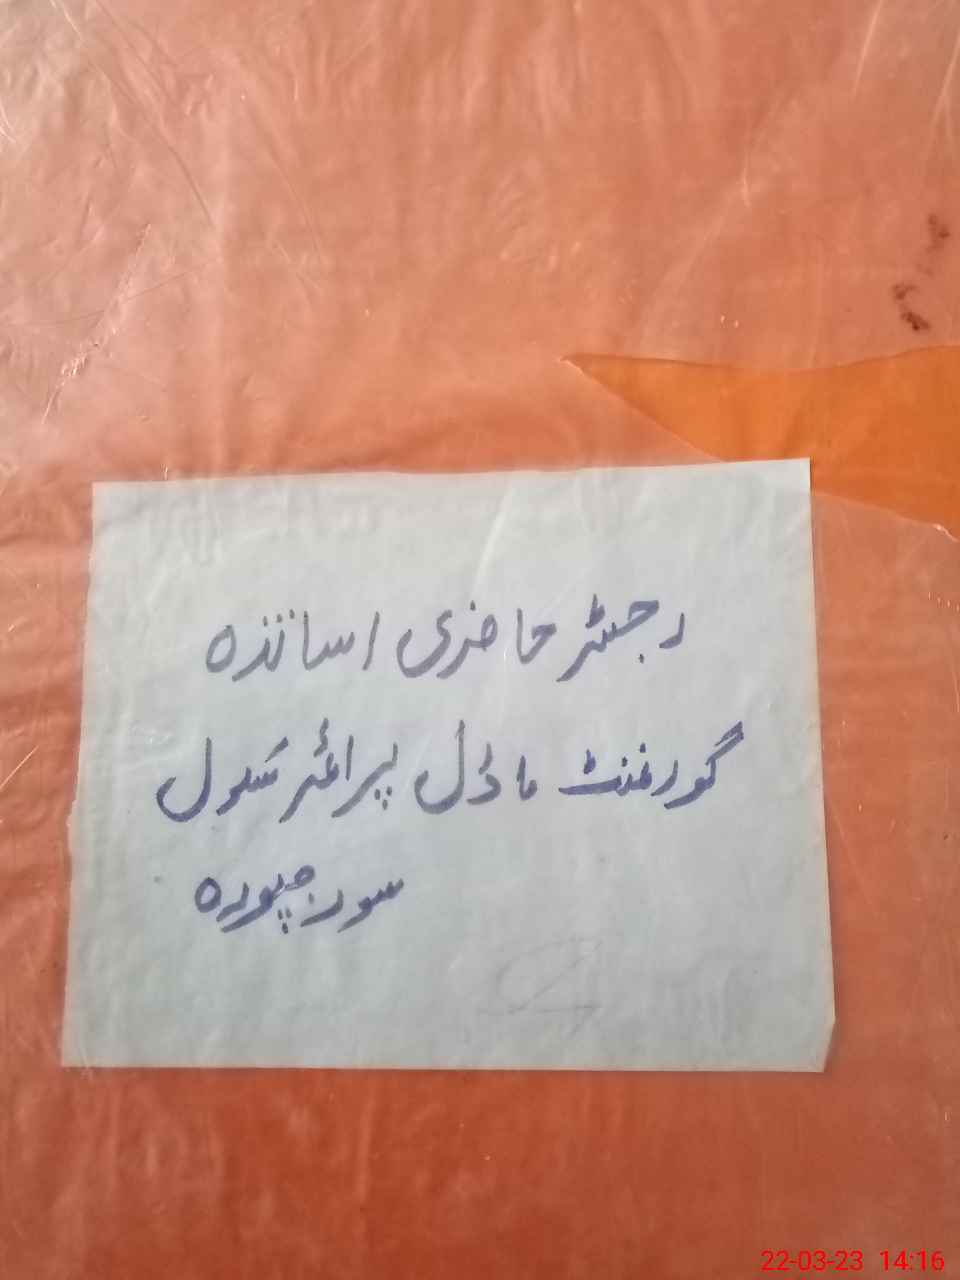 رجسٹر حاضری اساتذہ
گورنمنٹ ماڈل پرائمر سکول
سورجپورہ
22-03-23 14:16